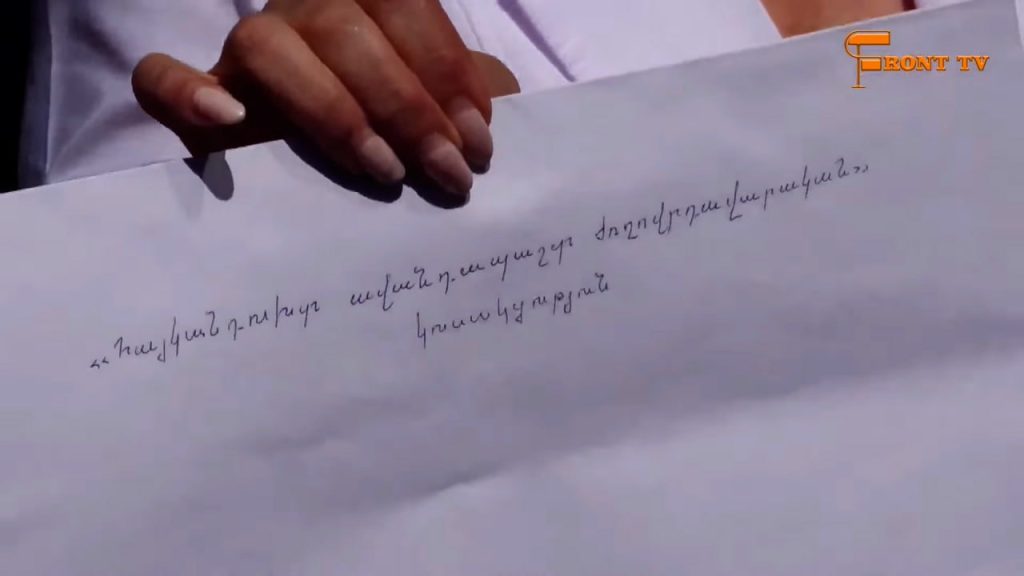 FRONT TV
«Հայկանդուխտ ավանդապաշտ ժողովրդավարական»
կուսակցություն